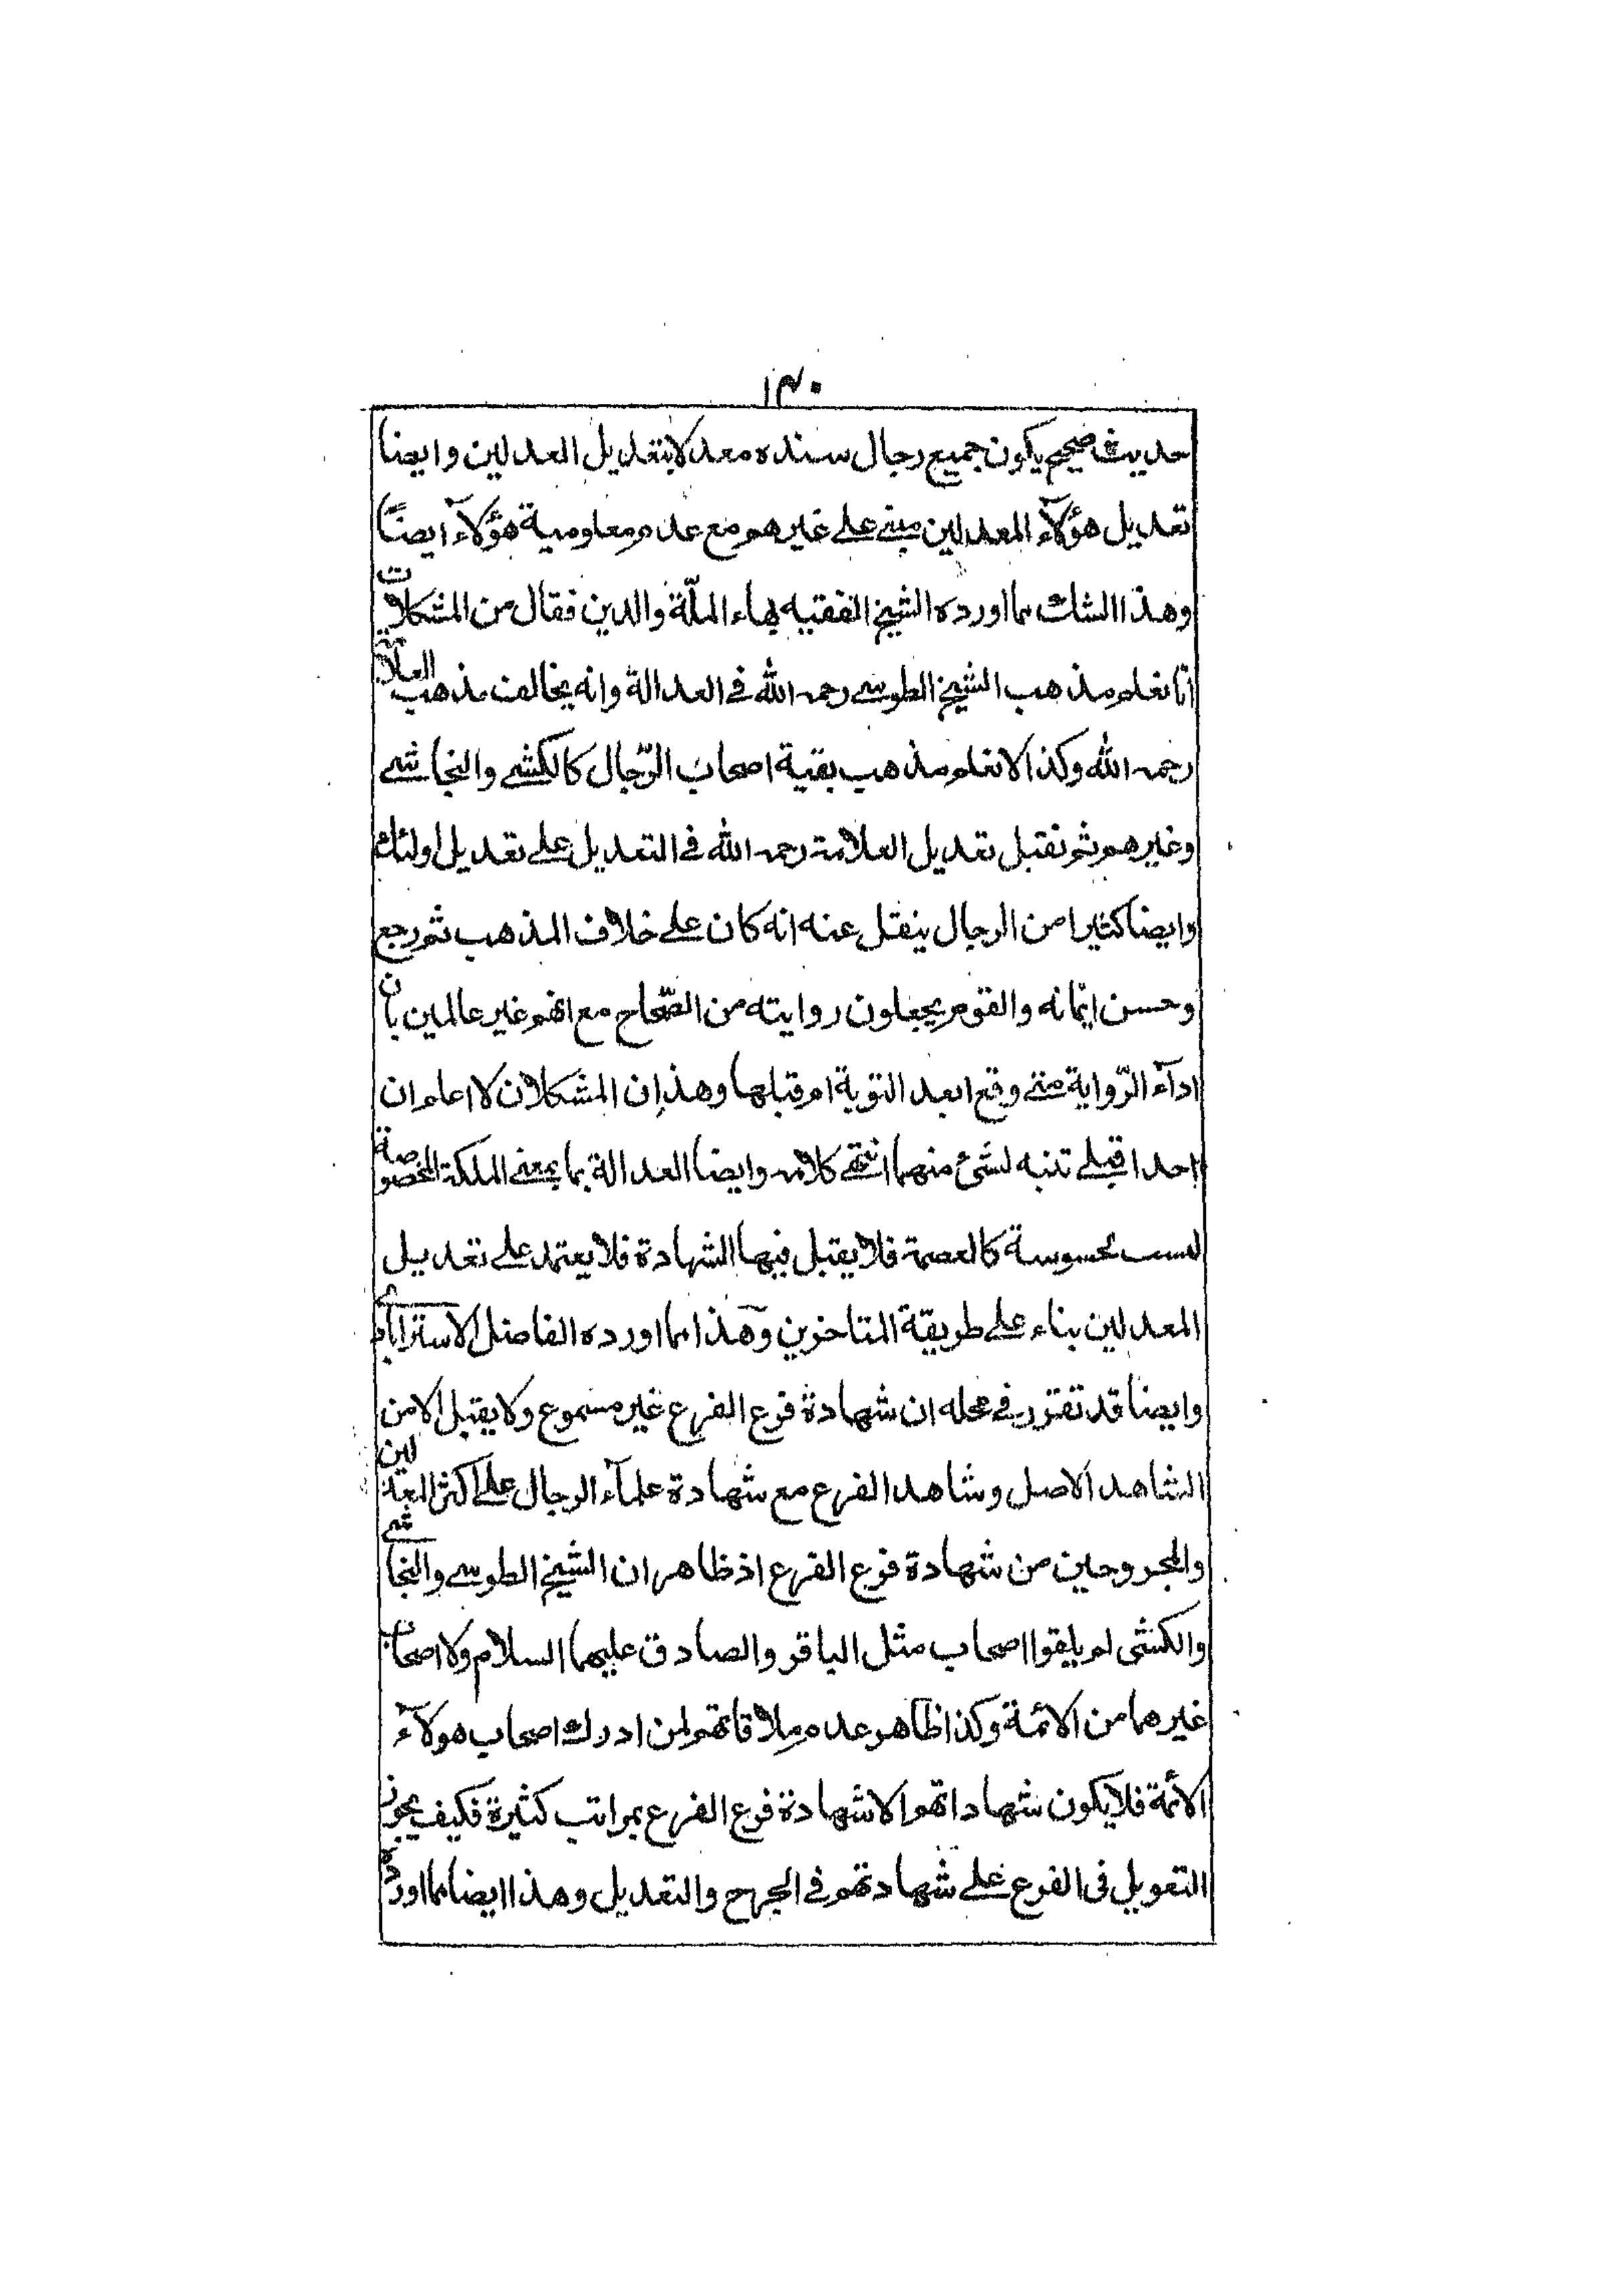 ١٣٠
حديث صحيح يكون جميع رجال سنده معدلا بتعديل العدلين وايضا
تعديل هؤلآء المعدلين مبنى على غيرهم مع عدم معلومية هؤلآء ايضًا
وهذا الشك مما اورده الشيخ الفقيه بهاء الملّة والدين فقال من المشكلات
انا نعلم مذهب الشيخ الطوسى رحمه الله فى العدالة وانه يخالف مذهب العلامة
رحمه الله وكذا لا نعلم مذهب بقية اصحاب الرّجال كالكشى والنجاشى
وغيرهم ثم نقبل تعديل العلامة رحمه الله فى التعديل على تعديل اولئك
وايضا كثيرا من الرجال ينقل عنه انه كان على خلاف المذهب ثم رجع
وحسن ايمانه والقوم يجعلون روايته من الصّحاح مع انهم غير عالمين بان
ادآء الرّواية متى وقع ابعد التوبة ام قبلها وهذان المشكلان لا اعلم ان
احدا قبلى تنبه لشئ منهما انتهى كلامه وايضا العدالة بما بمعنى الملكة المخصوصة
لسىت محسوسة كالعصمة فلا يقبل فيها الشهادة فلا يعتمد على تعديل
المعدلين بناء على طريقة المتاخرين وهذا مما اورده الفاضل الاسترابادى
وايضا قد تقرر فى محله ان شهادة فرع الفرع غير مسموع ولا يقبل الا من
الشاهد الاصل وشاهد الفرع مع شهادة علمآء الرجال على اكثر المعدلين
والمجروحين من شهادة فرع الفرع اذ ظاهر ان الشيخ الطوسى والنجاشى
والكشى لم يلقوا اصحاب مثل الباقر والصادق عليهما السلام ولا اصحاب
غيرهما من الائمة وكذا ظاهر عدم ملاقاتهم لمن ادرك اصحاب هولآء
الائمة فلا يكون شهاداتهم الا شهادة فرع الفرع بمراتب كثيرة فكيف يجوز
التعويل فى الفرع على شهادتهم فى الجرح والتعديل وهذا ايضا مما اورده